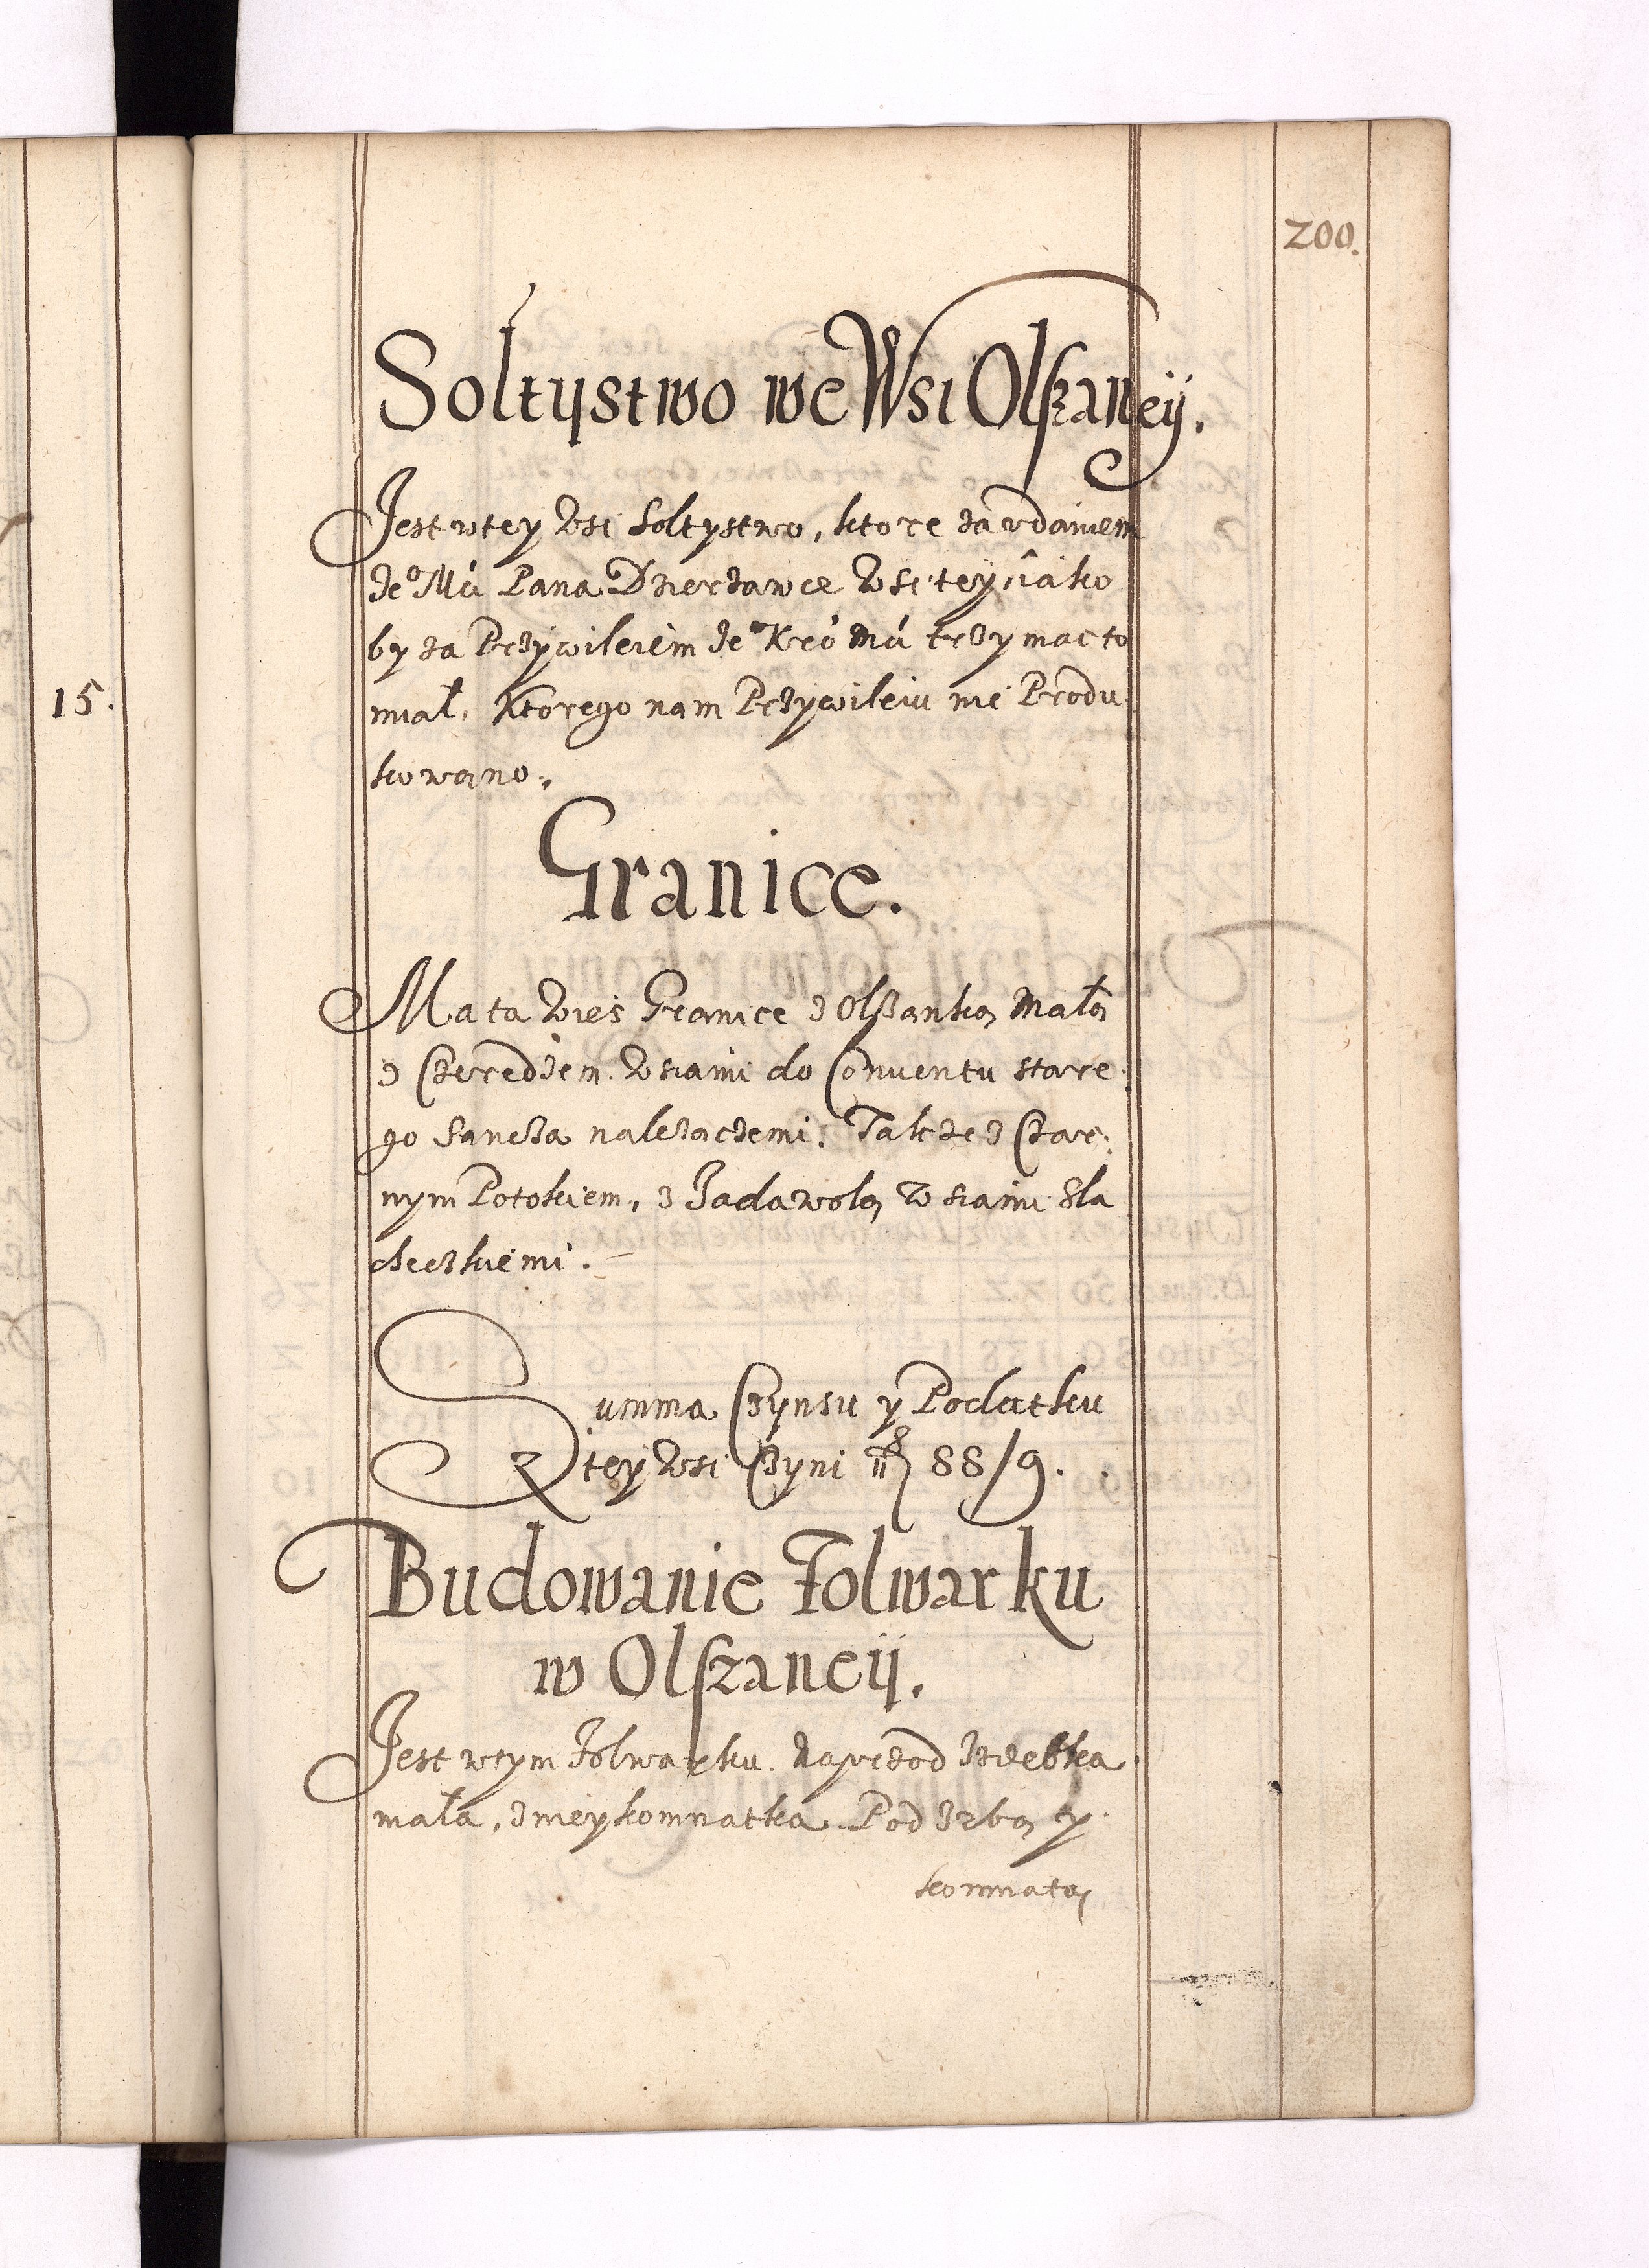 200.
15.
Sołtystwo we Wsi Olszaneij.
Jest w tey Wsi Sołtystwo, ktore za vdaniem
Je° Mći Pana Dzierzawce Wsi tey iako
by za Przywileiem Je° Kró Mći trzymac to
miał, Ktorego nam Przywileiu nie Produ
kowano.
Granice.
Ma ta Wieś Granice z Olszanką Małą
z Czeredzem Wsiami do Conuentu stare
go Sancza nalezaczemi. Takze z Czar:
nym Potokiem, z Zadawolą Wsiami Sla
checzkiemi.
Summa Czynsu y Podatku
z tey Wsi Czyni 88/9.
Budowanie Folwarku
w Olszaneij.
Jest w tym Folwarku. Naprzod Izdebka
mała, z niey komnatka. Pod Izbą y
komnatą